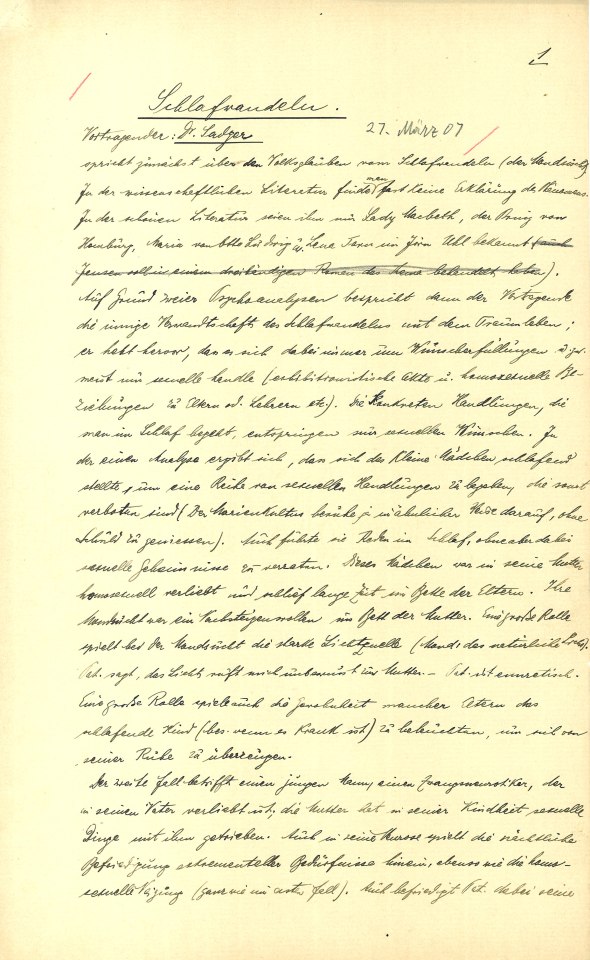 1
Schlafwandeln.
Vortragender: Dr. Sadger 27. März 07
spricht zunächst über den Volksglauben vom Schlafwandeln (der Mondsucht)
In der wissenschaftlichen Literatur finde man fast keine Erklärung des
In der schönen Literatur seien ihm nur Lady Macbeth, der Prinz von
Homburg, Maria von Otto Ludwig u. Lene Tarn in Jörn Uhl bekannt (auch
Jensen soll in einem dreibändigen Roman das Thema behandelt haben).
Auf Grund zweier Psychoanalysen bespricht dann der Vortragende
die innige Verwandtschaft des Schlafwandelns mit dem Traumleben;
er hebt hervor, dass es sich dabei immer um Wunscherfüllungen u. zu-
meist um sexuelle handle (exhibitionistische Akte u. homosexuelle Be-
ziehungen zu Eltern od. Lehrern etc.). Die konkreten Handlungen, die
man im Schlaf begeht, entspringen nur sexuellen Wünschen. In
der einen Analyse ergibt sich, dass sich das kleine Mädchen schlafend
stellte, um eine Reihe von sexuellen Handlungen zu begehen, die sonst
verboten sind (Der Marienkultus beruhe ja in ähnlicher Weise darauf, ohne
Schuld zu geniessen). Auch führte sie Reden im Schlaf, ohne aber dabei
sexuelle Geheimnisse zu verraten. Dieses Mädchen war in seine Mutter
homosexuell verliebt und schlief lange Zeit im Bette der Eltern. Ihre
Mondsucht war ein Nachsteigenwollen ins Bett der Mutter. Eine große Rolle
spielt bei der Mondsucht die starke Lichtquelle (Mond: das natürliche Licht).
Pat. sagt, das Licht ruft mich unbewusst zur Mutter. – Pat. ist enuretisch.
Eine große Rolle spiele auch die Gewohnheit mancher Eltern das
schlafende Kind (bes. wenn es krank ist) zu beleuchten, um sich von
seiner Ruhe zu überzeugen.
Der zweite Fall betrifft einen jungen Mann, einen Zwangsneurotiker, der
in seinen Vater verliebt ist; die Mutter hat in seiner Kindheit sexuelle
Dinge mit ihm getrieben. Auch in seine spielt die nächtliche
Befriedigung exkrementeller Bedürfnisse hinein, ebenso wie die homo-
sexuelle Neigung (ganz wie im ersten Fall). Auch befriedigt Pat. dabei seine